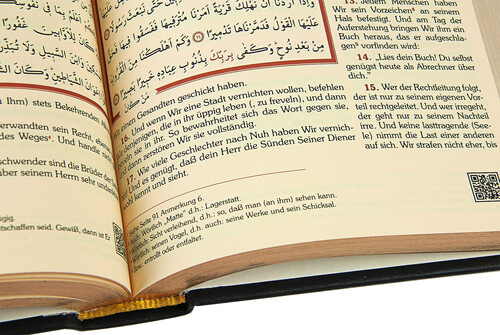 بِمَا فِي نُفُوسِكُمْ
لِلْأَوَّابِينَ غَفُورًا
وَابْنَ السَّبِيلِ وَلَا
الشَّيَاطِينِ وَكَانَ
ihm) stets Bekehrenden
erwandten sein Recht, ebenso
des Weges⁶. Und handle nicht
schwender sind die Brüder der
über seinem Herrn sehr undank
schaffen seid. Gewiß, dann ist Er
وَإِذَا أَرَدْنَا أَن نُّهْلِكَ قَرْيَةً أَمَرْنَا مُتْرَفِيهَا فَفَسَقُوا فِيهَا فَحَقَّ
عَلَيْهَا الْقَوْلُ فَدَمَّرْنَاهَا تَدْمِيرًا ١٦ وَكَمْ أَهْلَكْنَا مِنَ الْقُرُونِ
مِن بَعْدِ نُوحٍ وَكَفَىٰ بِرَبِّكَ بِذُنُوبِ عِبَادِهِ خَبِيرًا بَصِيرًا
einen Gesandten geschickt haben.
16. Und wenn Wir eine Stadt vernichten wollen, befehlen
denjenigen, die in ihr üppig leben (, zu freveln), und dann
freveln sie in ihr. So bewahrheitet sich das Wort gegen sie,
und dann zerstören Wir sie vollständig.
17. Wie viele Geschlechter nach Nuh haben Wir vernich-
Und es genügt, daß dein Herr die Sünden Seiner Diener
wohl kennt und sieht.
13. Jedem Menschen haben
Wir sein Vorzeichen⁴ an seinem
Hals befestigt. Und am Tag der
Auferstehung bringen Wir ihm ein
Buch heraus, das er aufgeschla-
gen⁵ vorfinden wird:
14. „Lies dein Buch! Du selbst
genügst heute als Abrechner über
dich."
15. Wer der Rechtleitung folgt,
der ist nur zu seinem eigenen Vor-
teil rechtgeleitet. Und wer irregeht,
der geht nur zu seinem Nachteil
irre. Und keine lasttragende (See-
le) nimmt die Last einer anderen
auf sich. Wir strafen nicht eher, bis
Siehe Seite 91 Anmerkung 6.
Wörtlich „Matte" d.h.: Lagerstatt.
Wörtlich: Sicht verleihend, d.h.: so, daß man (an ihm) sehen kann.
Wörtlich: seinen Vogel, d.h. auch: seine Werke und sein Schicksal.
D.h.: entrollt oder entfaltet.